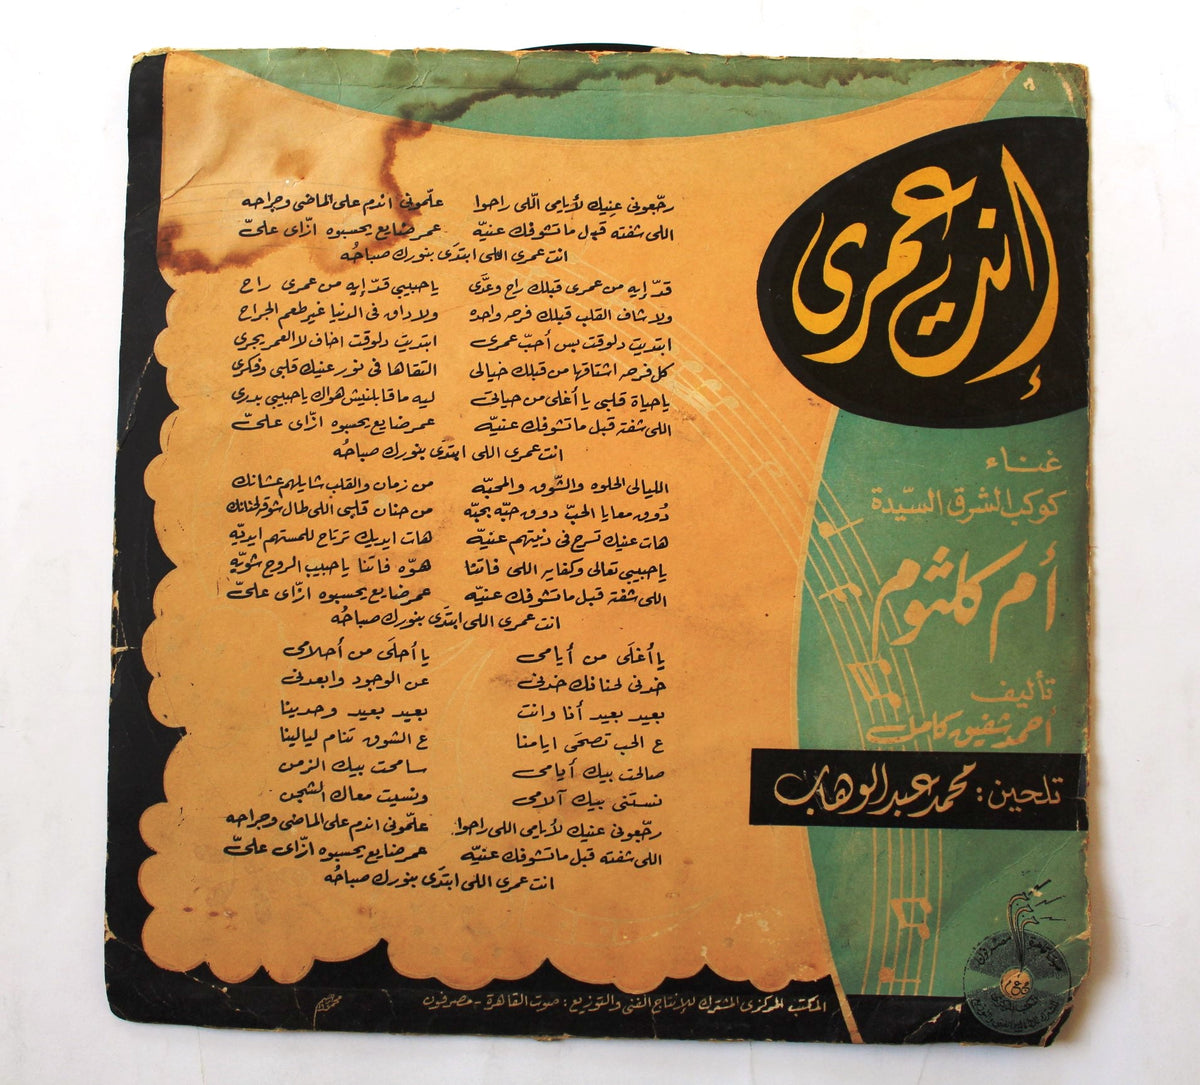 إنت عمرى
غناء
كوكب الشرق السيّدة
أم كلثوم
تأليف
أحمد شفيق كامل
تلحين: محمد عبد الوهاب
رجّعونى عنيك لأيامى اللى راحوا علّمونى اندم على الماضى وجراحه
اللى شفته قبل ماتشوفك عنيّه عمر ضايع يحسبوه ازّاى علىّ
انت عمرى اللى ابتدَى بنورك صباحُه
قدّ إيه من عمرى قبلك راح وعدَّى ياحبيبي قدّ إيه من عمرى راح
ولا شاف القلب قبلك فرحه واحده ولا داق فى الدنيا غير طعم الجراح
ابتديت دلوقت بس أحبّ عمرى ابتديت دلوقت اخاف لا العمر يجرى
كل فرحه اشتاقها من قبلك خيالى التقاها فى نور عنيك قلبى وفكرى
ياحياة قلبى يا أغلى من حياتى ليه ماقابلنيش هواك ياحبيبى بدرى
اللى شفته قبل ماتشوفك عنيّه عمر ضايع يحسبوه ازّاى علىّ
انت عمرى اللى ابتدَى بنورك صباحُه
الليالى الحلوه والشّوق والمحبّه من زمان والقلب شايلهم عشانك
دُوق معايا الحبّ دوق حبّه بحبّه من حنان قلبى اللى طال شوقه لحنانك
هات عنيك تسرح فى دنيتهم عنيّه هات ايديك ترتاح للمستهم ايديّه
ياحبيبى تعالى وكفايه اللى فاتنا هوّه فاتنا ياحبيب الروح شويّه
اللى شفته قبل ماتشوفك عنيّه عمر ضايع يحسبوه ازّاى علىّ
انت عمرى اللى ابتدَى بنورك صباحُه
يا أغلَى من أيامى يا أحلَى من أحلامى
خدنى لحنانك خدنى عن الوجود وابعدنى
بعيد بعيد أنا وانت بعيد بعيد وحدينا
ع الحب تصحَى ايامنا ع الشوق تنام ليالينا
صالحت بيك أيامى سامحت بيك الزمن
نستنى بيك آلامى ونسيت معاك الشجن
رجّعونى عنيك لأيامى اللى راحوا علّمونى اندم على الماضى وجراحه
اللى شفته قبل ماتشوفك عنيّه عمر ضايع يحسبوه ازّاى علىّ
انت عمرى اللى ابتدَى بنورك صباحُه
المكتب المركزى المشترك للإنتاج الفنى والتوزيع: صوت القاهرة - مصرفون